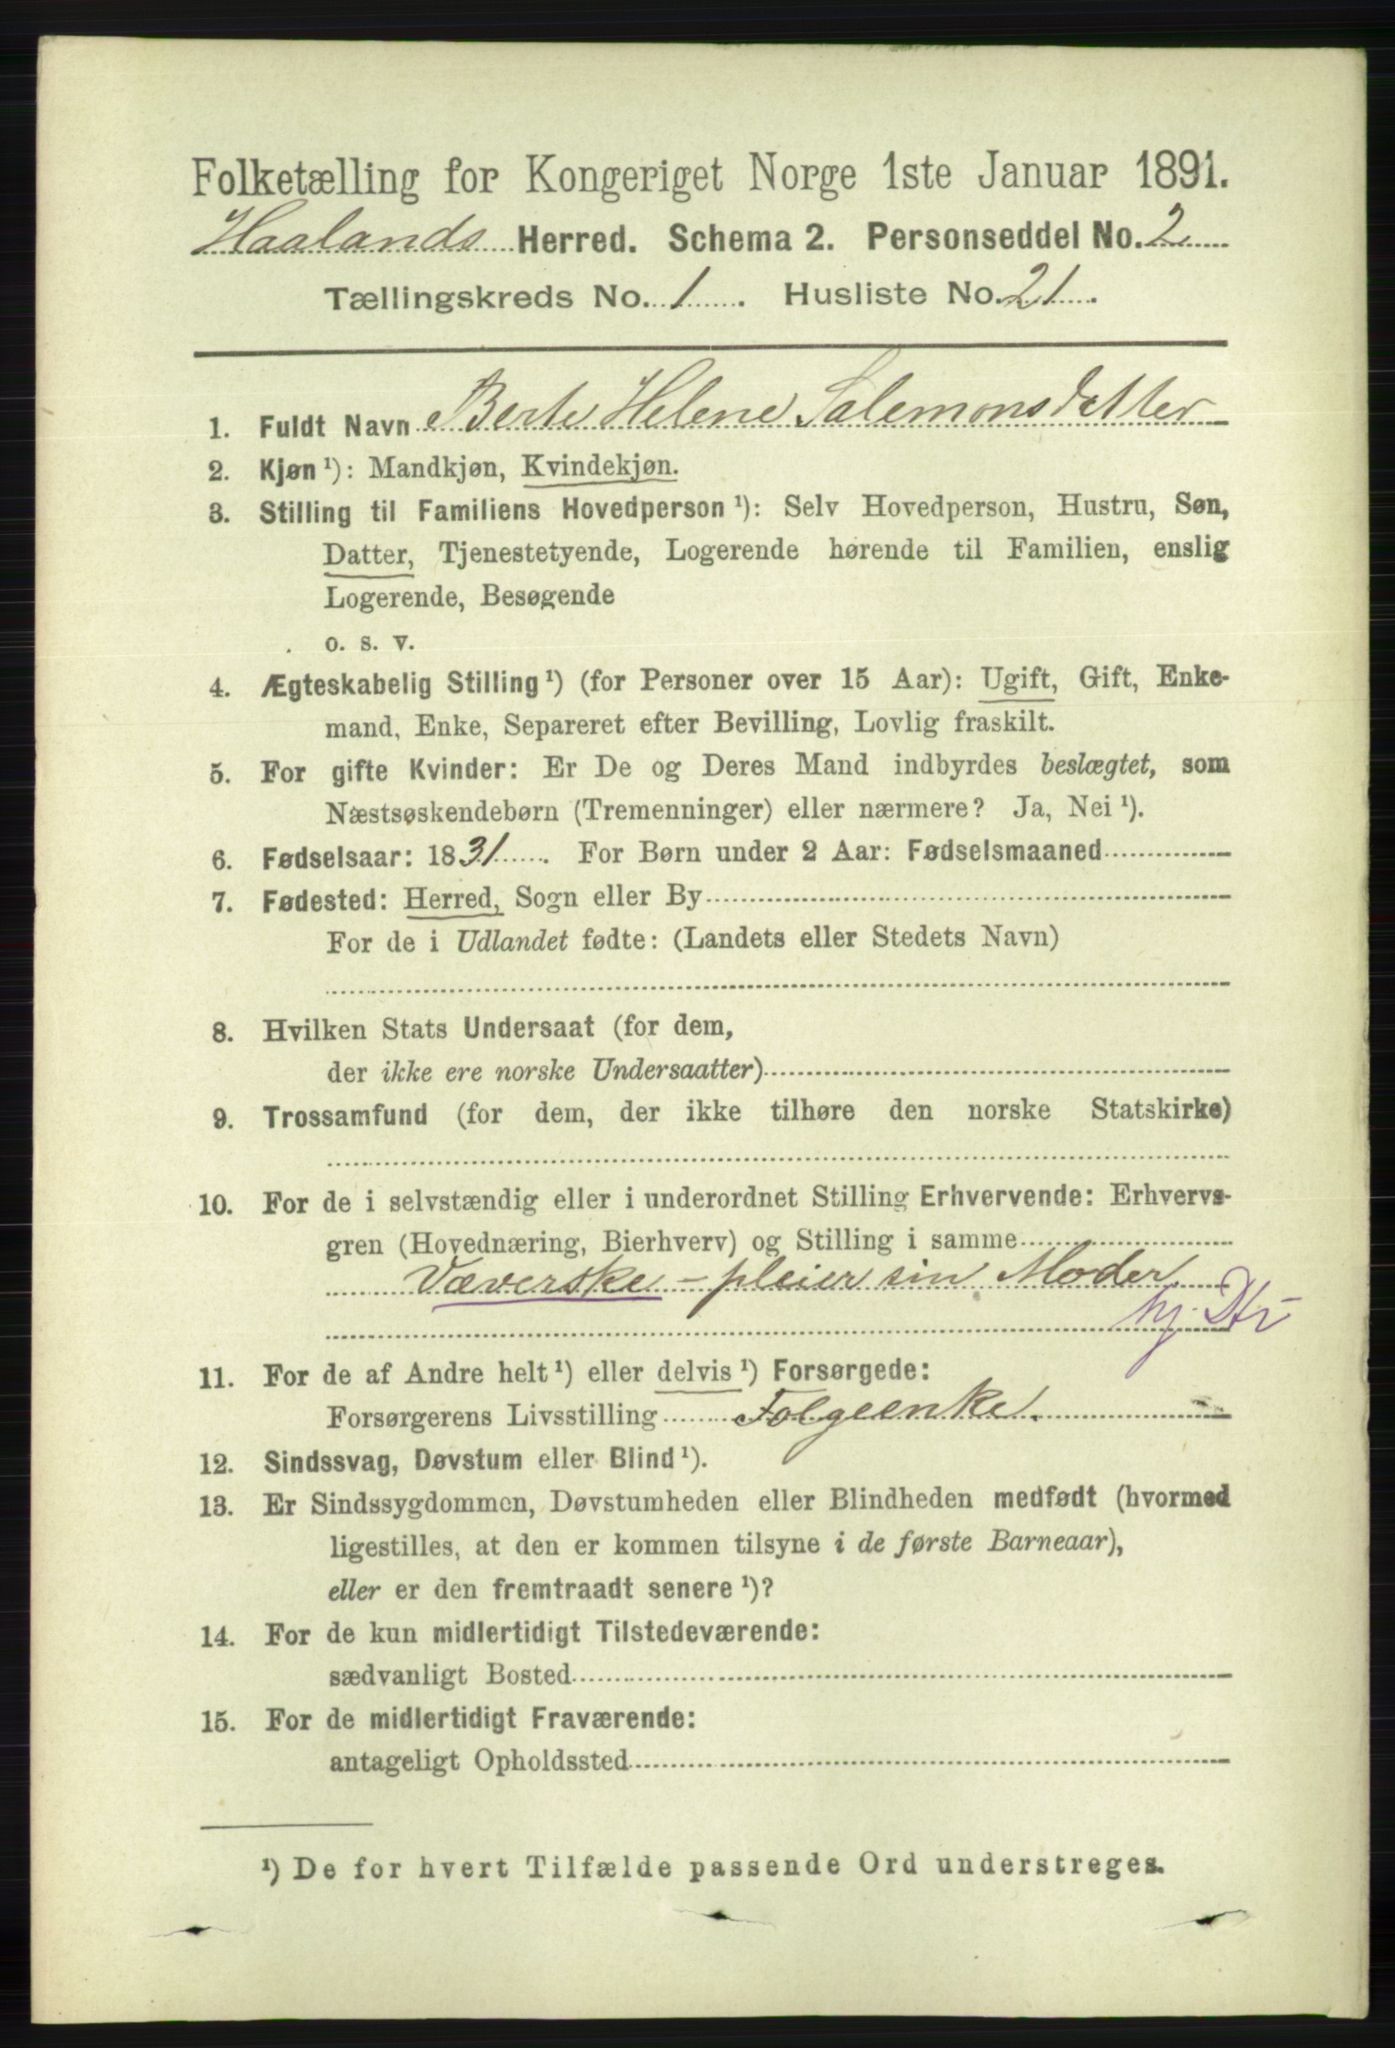 Folketælling for Kongeriget Norge 1ste Januar 1891.
Haalands Herred. Schema 2. Personseddel No. 2
Tællingskreds No. 1. Husliste No. 21.
1. Fuldt Navn Berte Helene Salemonsdatter
2. Kjøn ¹): Mandkjøn, Kvindekjøn.
3. Stilling til Familiens Hovedperson ¹): Selv Hovedperson, Hustru, Søn,
Datter, Tjenestetyende, Logerende hørende til Familien, enslig
Logerende, Besøgende
o. s. v.
4. Ægteskabelig Stilling ¹) (for Personer over 15 Aar): Ugift, Gift, Enke-
mand, Enke, Separeret efter Bevilling, Lovlig fraskilt.
5. For gifte Kvinder: Er De og Deres Mand indbyrdes beslægtet, som
Næstsøskendebørn (Tremenninger) eller nærmere? Ja, Nei ¹).
6. Fødselsaar: 1831. For Børn under 2 Aar: Fødselsmaaned
7. Fødested: Herred, Sogn eller By
For de i Udlandet fødte: (Landets eller Stedets Navn)
8. Hvilken Stats Undersaat (for dem,
der ikke ere norske Undersaatter)
9. Trossamfund (for dem, der ikke tilhøre den norske Statskirke)
10. For de i selvstændig eller i underordnet Stilling Erhvervende: Erhvervs-
gren (Hovednæring, Bierhverv) og Stilling i samme
Væverske - pleier sin Moder
hj. Dtr
11. For de af Andre helt ¹) eller delvis ¹) Forsørgede:
Forsørgerens Livsstilling Folgeenke.
12. Sindssvag, Døvstum eller Blind ¹).
13. Er Sindssygdommen, Døvstumheden eller Blindheden medfødt (hvormed
ligestilles, at den er kommen tilsyne i de første Barneaar),
eller er den fremtraadt senere ¹)?
14. For de kun midlertidigt Tilstedeværende:
sædvanligt Bosted
15. For de midlertidigt Fraværende:
antageligt Opholdssted
¹) De for hvert Tilfælde passende Ord understreges.